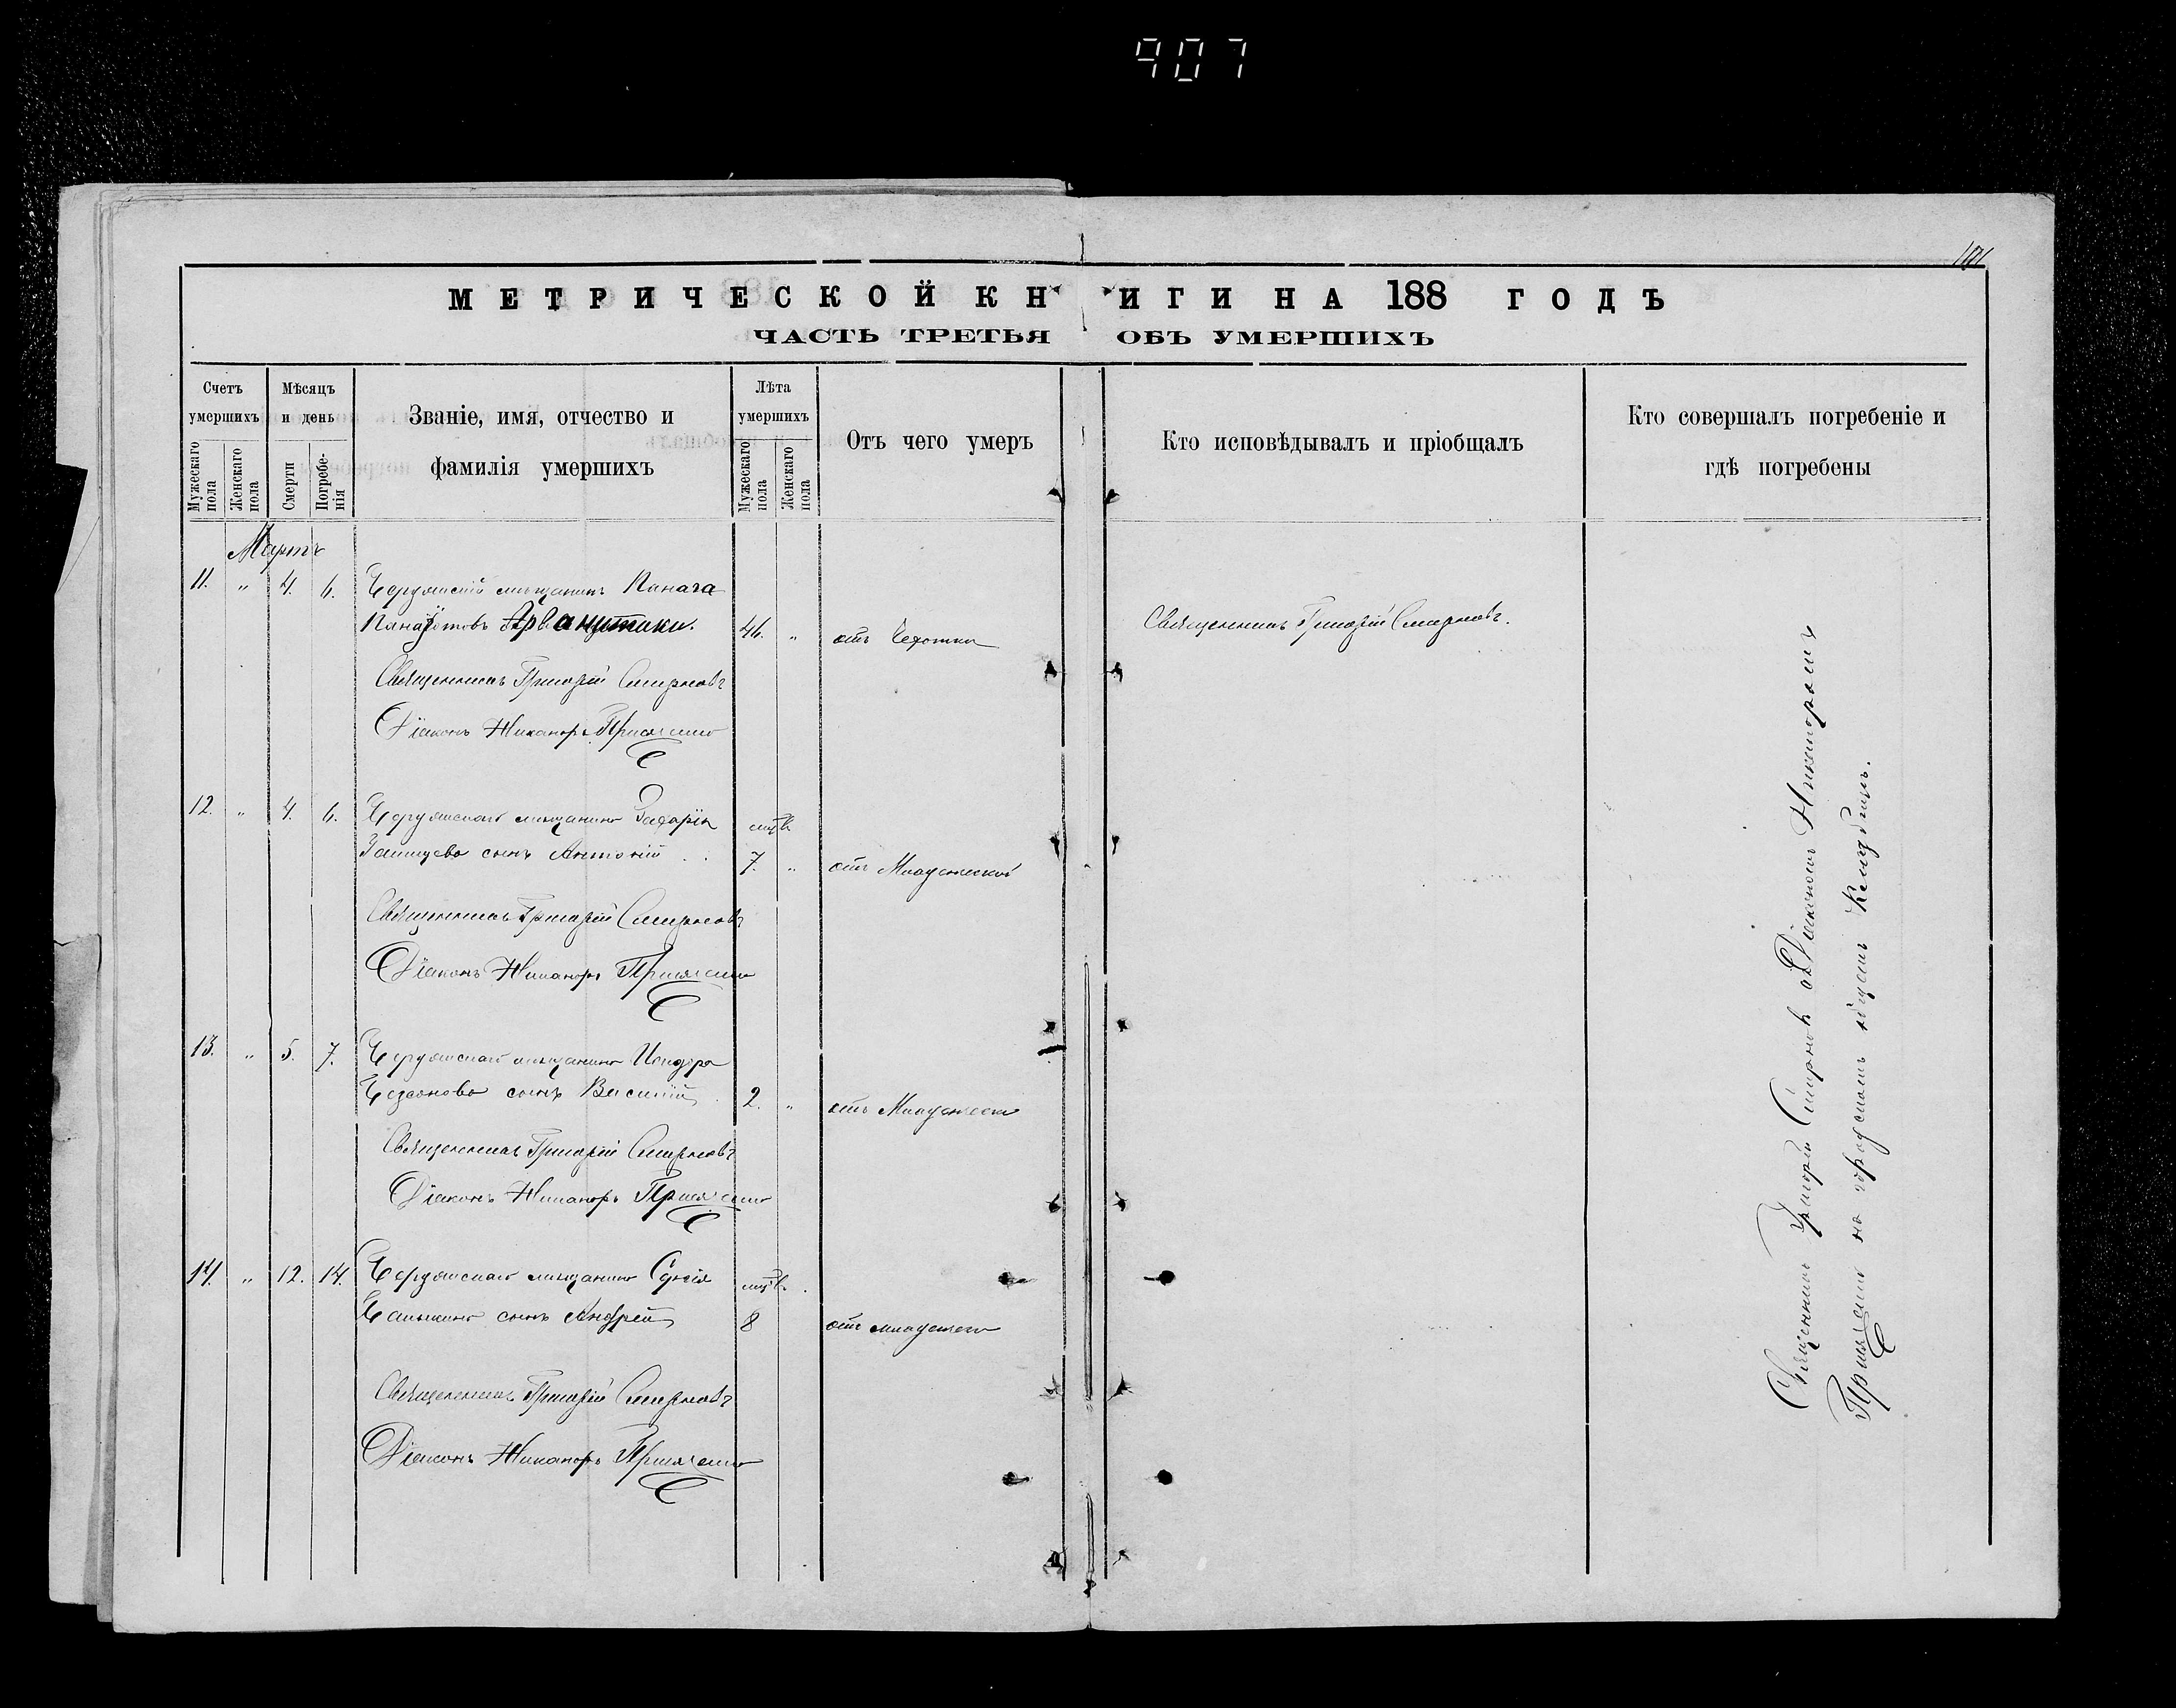 907
101
МЕТРИЧЕСКОЙ КНИГИ НА 188 ГОДЪ
ЧАСТЬ ТРЕТЬЯ ОБЪ УМЕРШИХЪ
Счетъ умершихъ
Мужескаго пола
Женскаго пола
Мѣсяцъ и день
Смерти
Погребенія
Званіе, имя, отчество и фамилія умершихъ
Лѣта умершихъ
Мужескаго пола
Женскаго пола
Отъ чего умеръ
Кто исповѣдывалъ и пріобщалъ
Кто совершалъ погребеніе и гдѣ погребены
Мартъ
11. " 4. 6. мѣщанинъ
46. " отъ Чахотки
Священникъ Григорій Смирновъ.
Священникъ Григорій Смирновъ
Діаконъ Никаноръ
12. " 4. 6. мѣщанина Захарія
сынъ Антоній 7. " отъ Младенческой
Священникъ Григорій Смирновъ
Діаконъ Никаноръ
13. " 5. 7. мѣщанина
сынъ Василій 2. " отъ
Священникъ Григорій Смирновъ
Діаконъ Никаноръ
14. " 12. 14. мѣщанина
сынъ Андрей 8 отъ
Священникъ Григорій Смирновъ
Діаконъ Никаноръ
Священникъ Григорій Смирновъ съ Діакономъ Никаноромъ
на городскомъ общемъ Кладбищѣ.